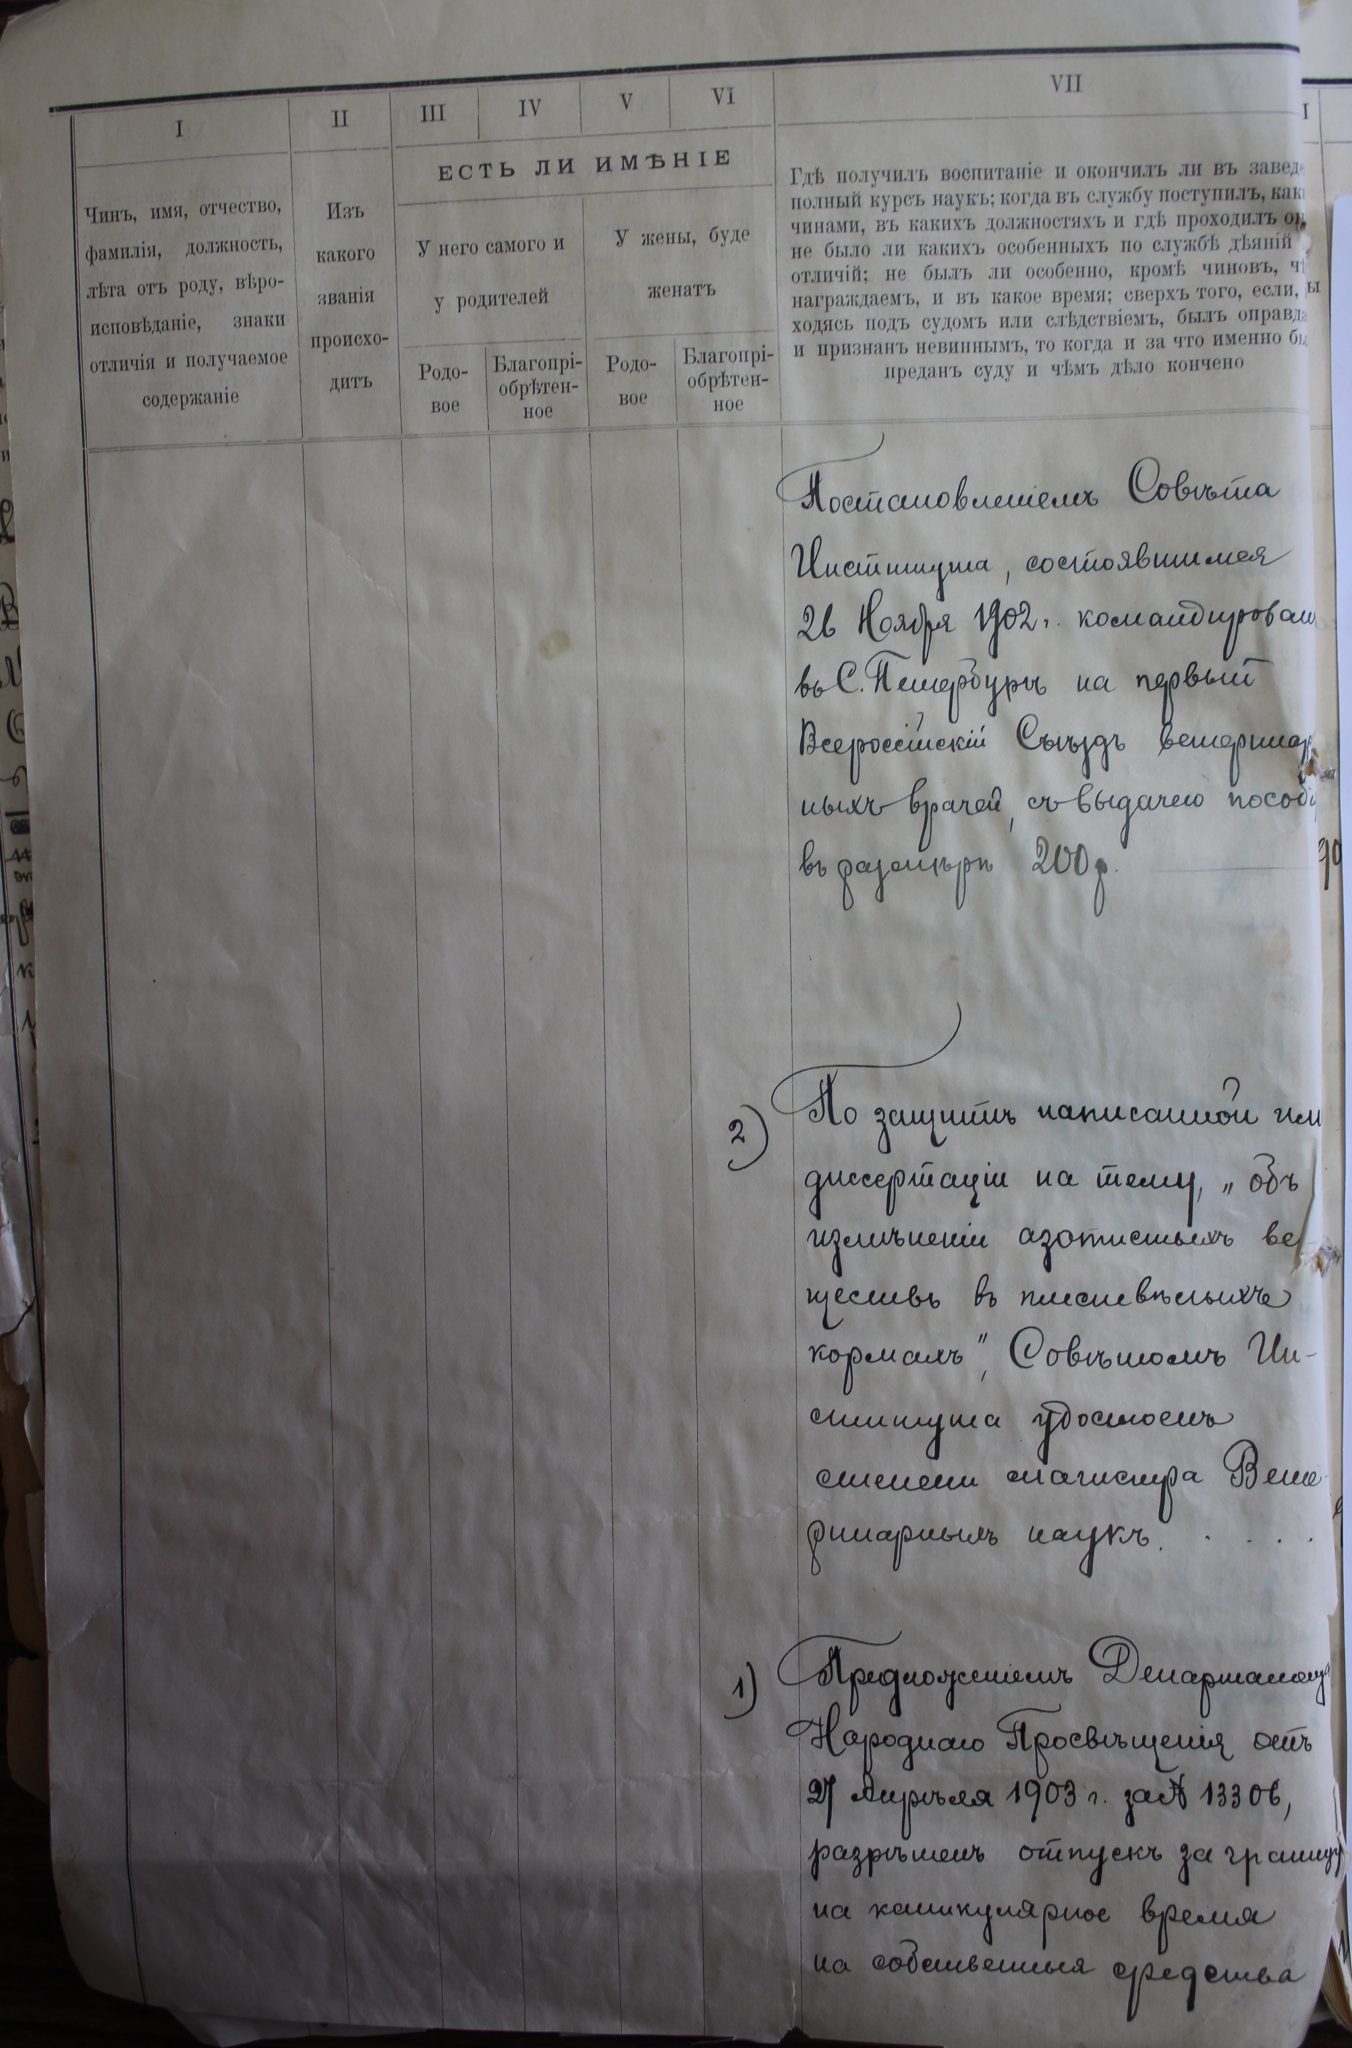 I II III IV V VI VII
ЕСТЬ ЛИ ИМѢНІЕ
Чинъ, имя, отчество,
фамилія, должность,
лѣта отъ роду, вѣро-
исповѣданіе, знаки
отличія и получаемое
содержаніе
Изъ
какого
званія
происхо-
дитъ
У него самого и
у родителей
У жены, буде
женатъ
Родо-
вое
Благопрі-
обрѣтен-
ное
Родо-
вое
Благопрі-
обрѣтен-
ное
Гдѣ получилъ воспитаніе и окончилъ ли въ завед
полный курсъ наукъ; когда въ службу поступилъ, как
чинами, въ какихъ должностяхъ и гдѣ проходилъ он
не было ли какихъ особенныхъ по службѣ дѣяній
отличій; не былъ ли особенно, кромѣ чиновъ, ч
награждаемъ, и въ какое время; сверхъ того, если,
ходясь подъ судомъ или слѣдствіемъ, былъ оправд
и признанъ невиннымъ, то когда и за что именно б
преданъ суду и чѣмъ дѣло кончено
Постановленіемъ Совѣта
Института, состоявшимся
26 Ноября 1902 г. командирован
въ С. Петербургъ на первый
Всероссійскій Съѣздъ ветеринар
ныхъ врачей, съ выдачею пособі
въ размѣрѣ 200 р.
2) По защитѣ написанной им
диссертаціи на тему, „объ
измѣненіи азотистыхъ ве-
ществъ въ плесневѣлыхъ
кормахъ", Совѣтомъ Ин-
ститута удостоенъ
степени магистра Вете-
ринарныхъ наукъ. . . . .
1) Предложеніемъ Департамента
Народнаго Просвѣщенія отъ
27 Апрѣля 1903 г. за № 13306,
разрѣшенъ отпускъ за границу
на каникулярное время
на собственныя средства